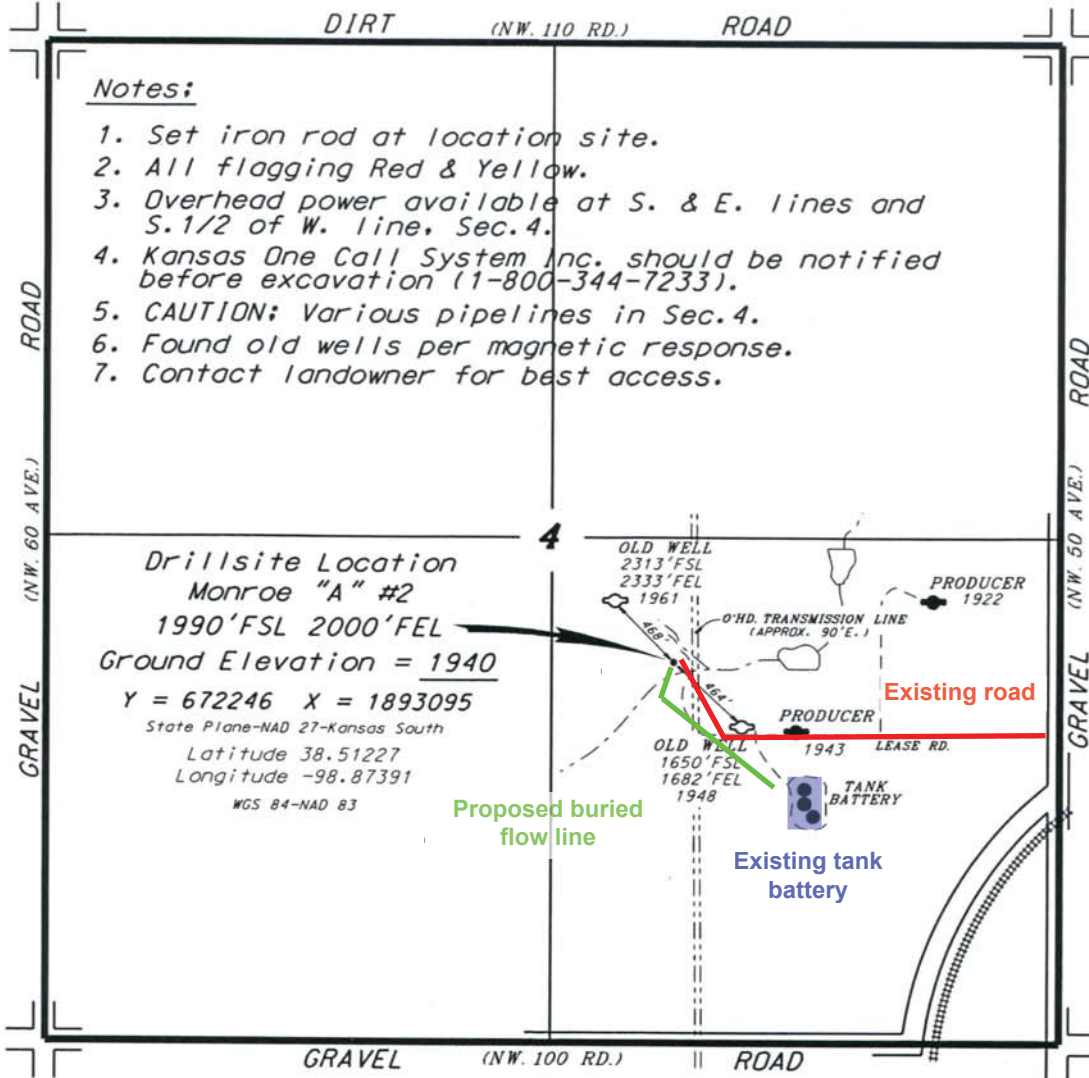 DIRT (NW. 110 RD.) ROAD
Notes:
1. Set iron rod at location site.
2. All flagging Red & Yellow.
3. Overhead power available at S. & E. lines and
S.1/2 of W. line, Sec.4.
4. Kansas One Call System Inc. should be notified
before excavation (1-800-344-7233).
5. CAUTION: Various pipelines in Sec.4.
6. Found old wells per magnetic response.
7. Contact landowner for best access.
ROAD
(NW. 60 AVE.)
GRAVEL
ROAD
(NW. 50 AVE.)
GRAVEL
4
Drillsite Location
Monroe "A" #2
1990'FSL 2000'FEL
Ground Elevation = 1940
Y = 672246 X = 1893095
State Plane-NAD 27-Kansas South
Latitude 38.51227
Longitude -98.87391
WGS 84-NAD 83
OLD WELL
2313'FSL
2333'FEL
1961
468'
O'HD. TRANSMISSION LINE
(APPROX. 90'E.)
PRODUCER
1922
464'
Existing road
PRODUCER
1943
LEASE RD.
OLD WELL
1650'FSL
1682'FEL
1948
TANK
BATTERY
Proposed buried
flow line
Existing tank
battery
GRAVEL (NW. 100 RD.) ROAD